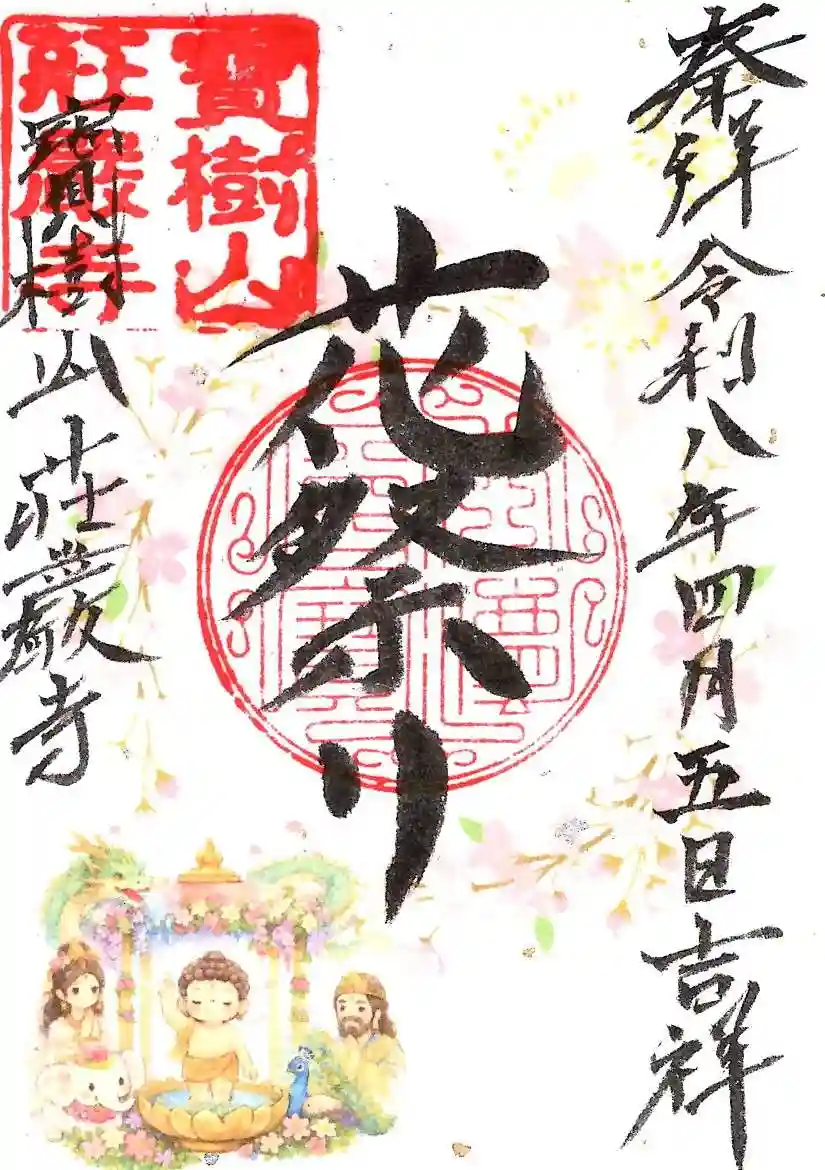 奉拝 令和八年四月五日 吉祥
花祭り
寳樹山 荘嚴寺
寳樹山
荘嚴寺